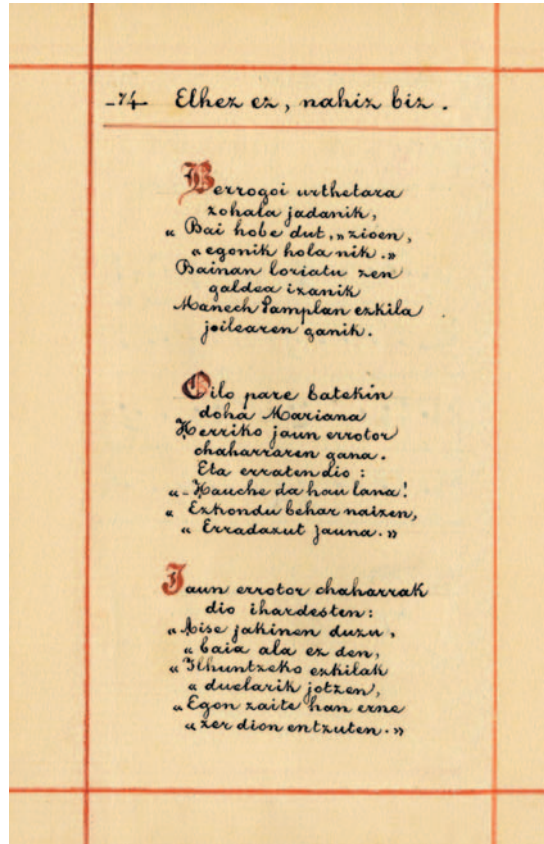 -74- Elhez ez, nahiz biz.
Berrogoi urthetara
zohala jadanik,
« Bai hobe dut, » zioen,
« egonik hola nik. »
Bainan loriatu zen
galdea izanik
Manech Pamplan ezkila
joilearen ganik.
Oilo pare batekin
doha Mariana
Herriko jaun errotor
chaharraren gana.
Eta erraten dio :
« - Hauche da hau lana !
« Ezkondu behar naizen,
« Erradazut Jauna. »
Jaun errotor chaharrak
dio ihardesten :
« Aise jakinen duzu,
« baia ala ez den,
« Ilhuntzeko ezkilak
« duelarik jotzen,
« Egon zaite han erne
« zer dion entzuten. »